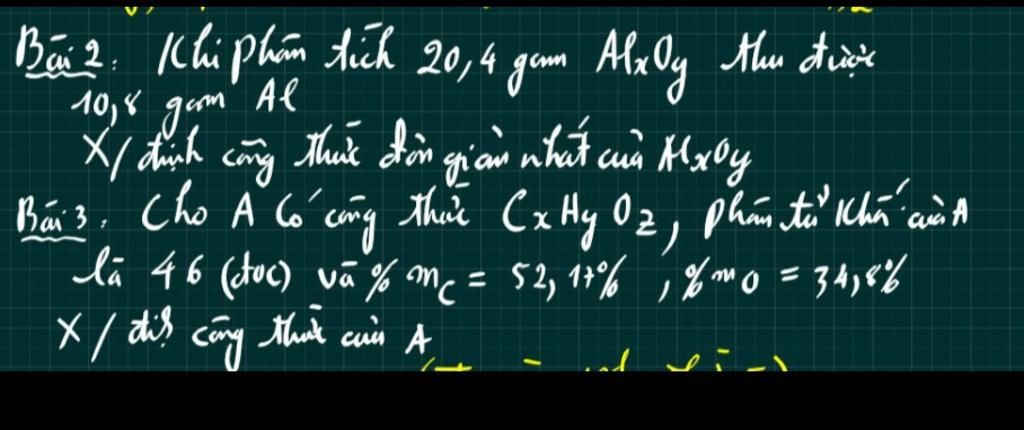 Bài 2: Khi phân tích 20,4 gam AlxOy thu được
10,8 gam Al
X/định công thức đơn giản nhất của AlxOy
Bài 3: Cho A có công thức CxHyOz, phân tử khối của A
là 46 (đvC) và % mC = 52,17%, % mO = 34,8%
X/đị? công thức của A